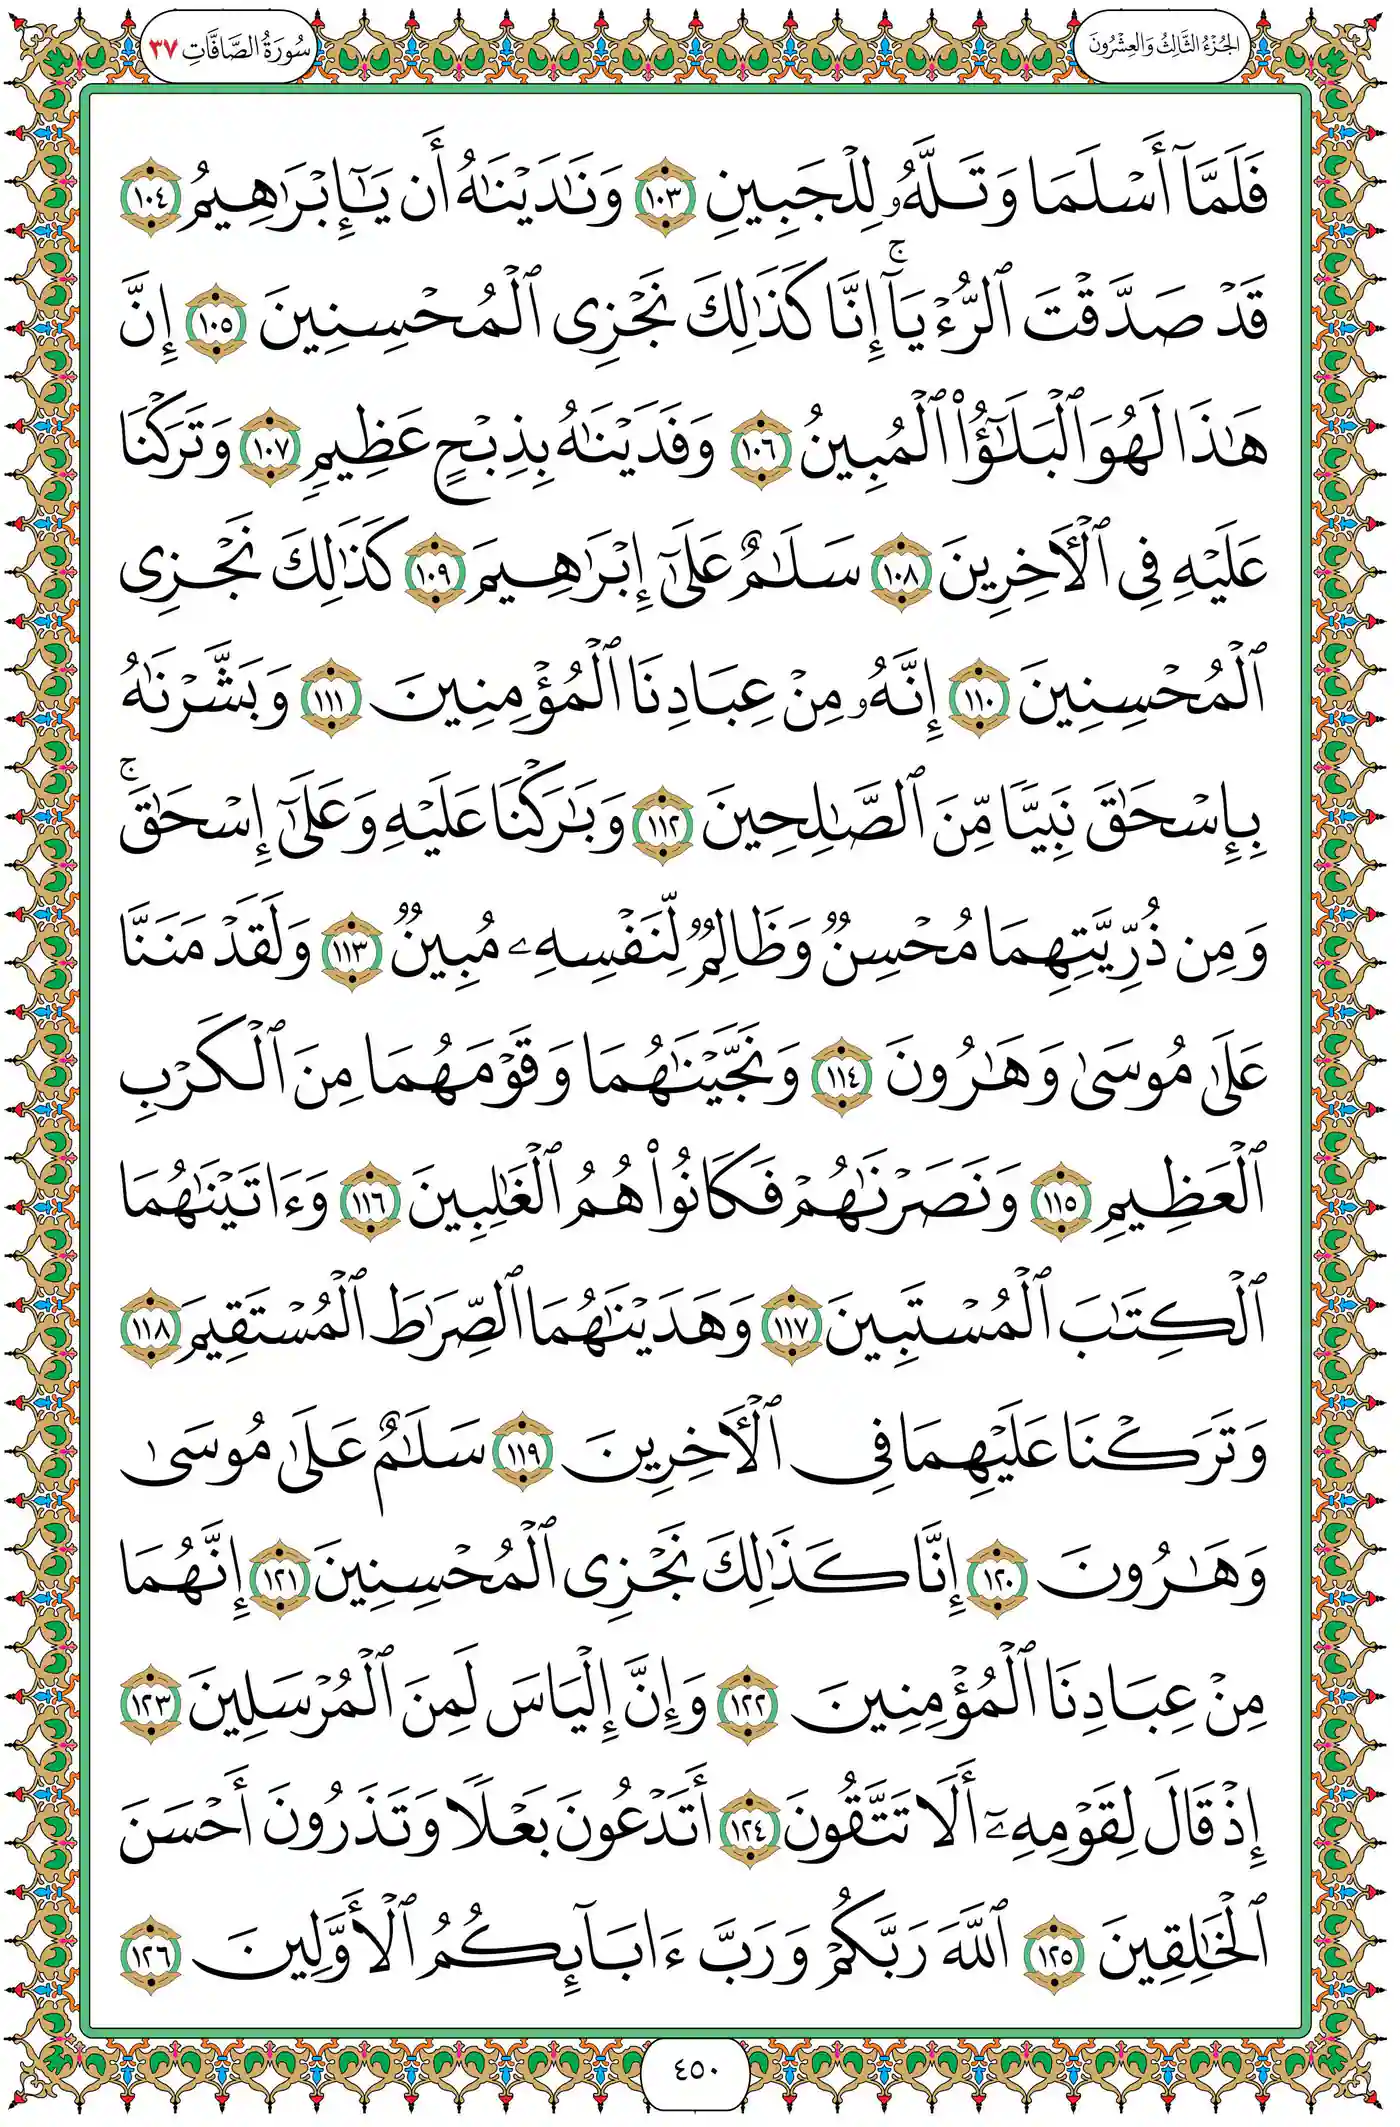 الجُزْءُ الثَّالِثُ وَالعِشْرُونَ
سُورَةُ الصَّافَّاتِ ٣٧
فَلَمَّآ أَسْلَمَا وَتَلَّهُۥ لِلْجَبِينِ ١٠٣ وَنَٰدَيْنَٰهُ أَن يَٰٓإِبْرَٰهِيمُ ١٠٤
قَدْ صَدَّقْتَ ٱلرُّءْيَآۚ إِنَّا كَذَٰلِكَ نَجْزِى ٱلْمُحْسِنِينَ ١٠٥ إِنَّ
هَٰذَا لَهُوَ ٱلْبَلَٰٓؤُا۟ ٱلْمُبِينُ ١٠٦ وَفَدَيْنَٰهُ بِذِبْحٍ عَظِيمٍ ١٠٧ وَتَرَكْنَا
عَلَيْهِ فِى ٱلْأَخِرِينَ ١٠٨ سَلَٰمٌ عَلَىٰٓ إِبْرَٰهِيمَ ١٠٩ كَذَٰلِكَ نَجْزِى
ٱلْمُحْسِنِينَ ١١٠ إِنَّهُۥ مِنْ عِبَادِنَا ٱلْمُؤْمِنِينَ ١١١ وَبَشَّرْنَٰهُ
بِإِسْحَٰقَ نَبِيًّا مِّنَ ٱلصَّٰلِحِينَ ١١٢ وَبَٰرَكْنَا عَلَيْهِ وَعَلَىٰٓ إِسْحَٰقَۚ
وَمِن ذُرِّيَّتِهِمَا مُحْسِنٌ وَظَالِمٌ لِّنَفْسِهِۦ مُبِينٌ ١١٣ وَلَقَدْ مَنَنَّا
عَلَىٰ مُوسَىٰ وَهَٰرُونَ ١١٤ وَنَجَّيْنَٰهُمَا وَقَوْمَهُمَا مِنَ ٱلْكَرْبِ
ٱلْعَظِيمِ ١١٥ وَنَصَرْنَٰهُمْ فَكَانُوا۟ هُمُ ٱلْغَٰلِبِينَ ١١٦ وَءَاتَيْنَٰهُمَا
ٱلْكِتَٰبَ ٱلْمُسْتَبِينَ ١١٧ وَهَدَيْنَٰهُمَا ٱلصِّرَٰطَ ٱلْمُسْتَقِيمَ ١١٨
وَتَرَكْنَا عَلَيْهِمَا فِى ٱلْأَخِرِينَ ١١٩ سَلَٰمٌ عَلَىٰ مُوسَىٰ
وَهَٰرُونَ ١٢٠ إِنَّا كَذَٰلِكَ نَجْزِى ٱلْمُحْسِنِينَ ١٢١ إِنَّهُمَا
مِنْ عِبَادِنَا ٱلْمُؤْمِنِينَ ١٢٢ وَإِنَّ إِلْيَاسَ لَمِنَ ٱلْمُرْسَلِينَ ١٢٣
إِذْ قَالَ لِقَوْمِهِۦٓ أَلَا تَتَّقُونَ ١٢٤ أَتَدْعُونَ بَعْلًا وَتَذَرُونَ أَحْسَنَ
ٱلْخَٰلِقِينَ ١٢٥ ٱللَّهَ رَبَّكُمْ وَرَبَّ ءَابَآئِكُمُ ٱلْأَوَّلِينَ ١٢٦
٤٥٠